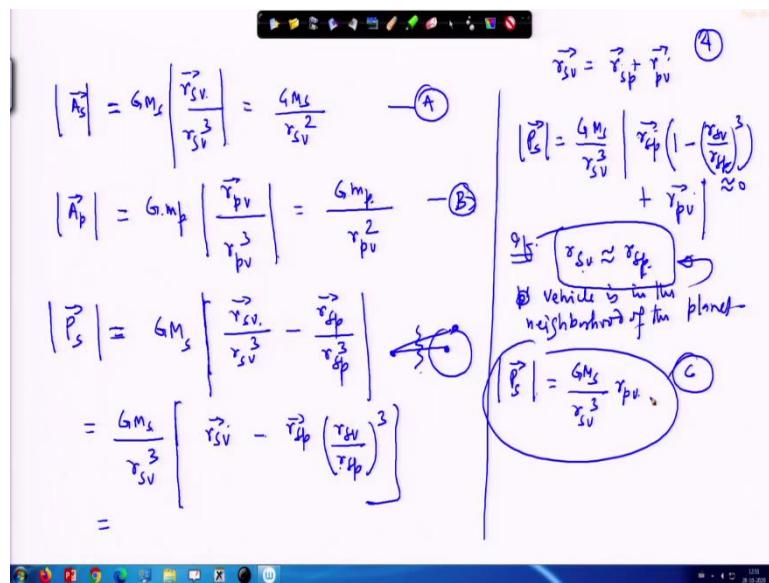 |A⃗_s| = GM_s |r⃗_sv / r_sv^3| = GM_s / r_sv^2 — (A)
|A⃗_p| = G.m_p |r⃗_pv / r_pv^3| = Gm_p / r_pv^2 — (B)
|P⃗_s| = GM_s |r⃗_sv / r_sv^3 - r⃗_sp / r_sp^3|
= GM_s / r_sv^3 [r⃗_sv - r⃗_sp (r_sv / r_sp)^3]
=
(4)
r⃗_sv = r⃗_sp + r⃗_pv
|P⃗_s| = GM_s / r_sv^3 | r⃗_sp (1 - (r_sv / r_sp)^3)
+ r⃗_pv | ≈0
If r_sv ≈ r_sp
vehicle is in the
neighborhood of the planet
|P⃗_s| = GM_s / r_sv^3 r_pv. (C)
12:51
28-10-2020